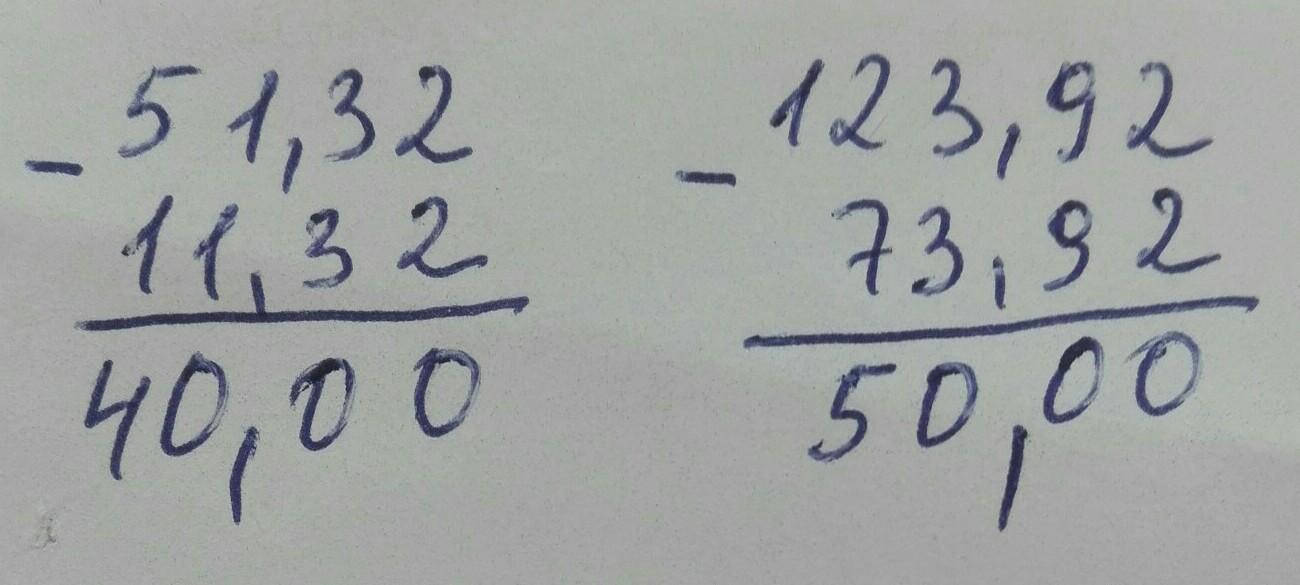 - 51,32
11,32
40,00
- 123,92
73,92
50,00